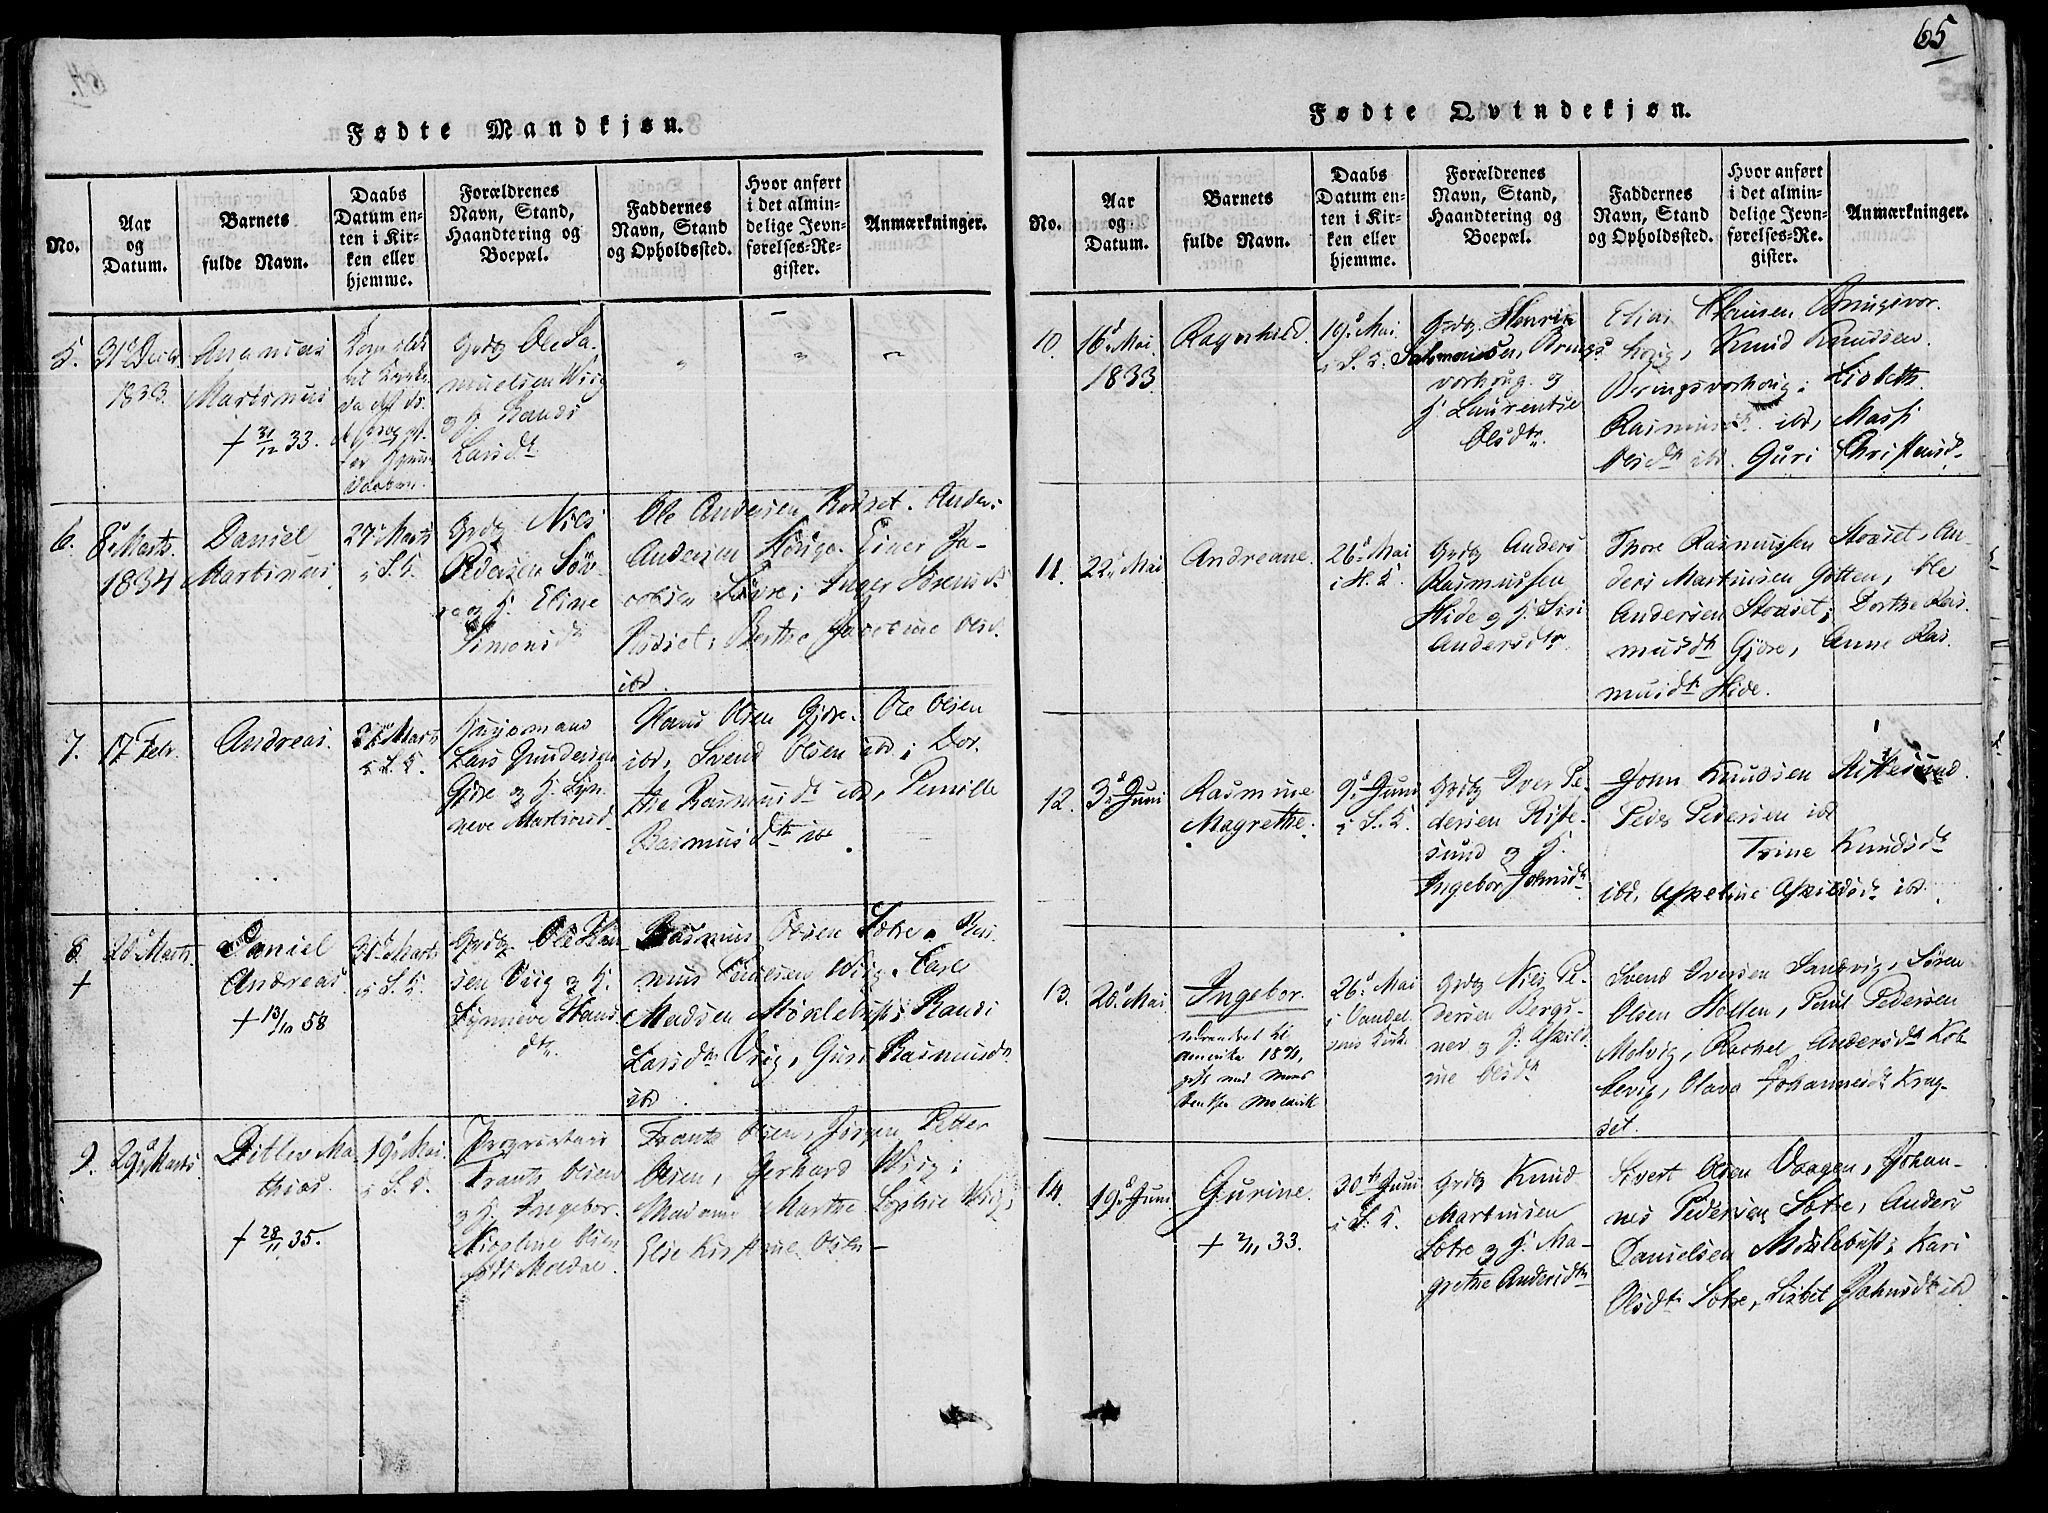 65
Fødte Mandkjøn.
No.
Aar
og
Datum.
Barnets
fulde Navn.
Daabs
Datum en-
ten i Kir-
ken eller
hjemme.
Forældrenes
Navn, Stand,
Haandtering og
Boepæl.
Faddernes
Navn, Stand
og Opholdssted.
Hvor anført
i det almin-
delige Jevn-
førelses-Re-
gister.
Anmærkninger.
5.
31 Decbr
1833
Ananias
Martinus
+ 31/12 33.
Grdbr Ole Sa-
muelsen Wiig
og H. Randi
Larsdt
6.
8d Marts
1834
Daniel
Martinus
27 Marts
i S. K.
Grdbr Niels
Pedersen Søv-
re og H. Eline
Simonsdt
Ole Andersen Rødset. Anders
Andersen
Einer Ja-
cobsen Søvre; Inger Sørensdt
Rødset; Berthe Jacobine Olsd.
ibd.
7.
17 Febr.
Andreas.
Marts
i S. K.
Huusmand
Lars Gundersen
Gjøre og H. Syn-
neve Martinusd
Hans Olsen Gjøre. Ole Olsen
ibd, Svend Olsen ibd; Dor-
the Rasmusdt ibd, Pernille
Rasmusdtr ibd
8
+
28d Marts
Daniel
Andreas.
+ 13/10 58
31d Marts
i S. K.
Grdbr. Ole Han-
sen Viig og H.
Synneve Hans-
dtr.
Rasmus Olsen Sætre. Ras-
mus
Wiig. Carl
Madsen Møklebust; Randi
Larsdtr Viig, Guri Rasmusdtr
ibd
9.
29d Marts
Ditlev Ma-
thias.
+ 28/11 35.
19d Mai
i S. K.
Proprietair
Frants Olsen
og H. Ingebor.
Nicoline Olsen
født Moldal
Frants Olsen, Jørgen Petter
Olsen, Gerhard Wiig;
Madame Marthe Sophie Wiig,
Elie Kirstine Olsen
Fødte Qvindekjøn.
No.
Aar
og
Datum.
Barnets
fulde Navn.
Daabs
Datum en-
ten i Kir-
ken eller
hjemme.
Forældrenes
Navn, Stand,
Haandtering og
Boepæl.
Faddernes
Navn, Stand
og Opholdssted.
Hvor anført
i det almin-
delige Jevn-
førelses-Re-
gister.
Anmærkninger.
10
16d Mai
1833
Ragnhild.
19d Mai
i S. K.
Grdbr. Henrik
Salomonsen Brings-
vorhoug. og
H Laurentse
Olsdtr.
Elias Hansen Bringsvor-
houg, Knud Knudsen
Bringsvorhoug; Lisbeth
Rasmusdt. ibd,
Olsdtr ibd. Guri Christensd.
11.
22d Mai
Andreane.
26d Mai
i H. K.
Grdbr Anders
Rasmussen
Hide og H. Siri
Andersdtr
Thore Rasmussen Stoset, An-
ders Martinsen Gotten, Ole
Andersen Stoset; Dorthe Ras-
musdtr Gjøre, Anne Ras-
musdtr Hide.
12.
3d Juni
Rasmine
Magrethe.
9d Juni
i S. K.
Grdbr Iver Pe-
dersen Riste-
sund og H.
Ingebor Johnsdtr
John Knudsen Ristesund.
Peder Pedersen ibd
Trine Knudsdtr
ibd,
13.
20d Mai
Ingebor.
Udvandret til
Amerika
gift med Mons
26d Mai
i Vandel-
vens Kirke
Grdbr Niels Pe-
dersen Bergs-
nev og H.
ine Olsdtr
Svend Iversen Sandvig, Søren
Olsen Hollen, Poul Pedersen
Molvig, Rachel Andersdt Kob-
bevig, Olava Johannesdt Krag-
set.
14.
19d Juni
Gurine.
+ 2/11 33.
30te Juni
i S. K.
Grdbr Knud
Martinsen
Sætre og H. Ma-
grethe Andersdtr
Sivert Olsen Vaagen, Johan-
nes Pedersen Sætre, Anders
Danielsen Møklebust; Kari
Olsdtr Sætre, Lisbet Johnsdtr ibd